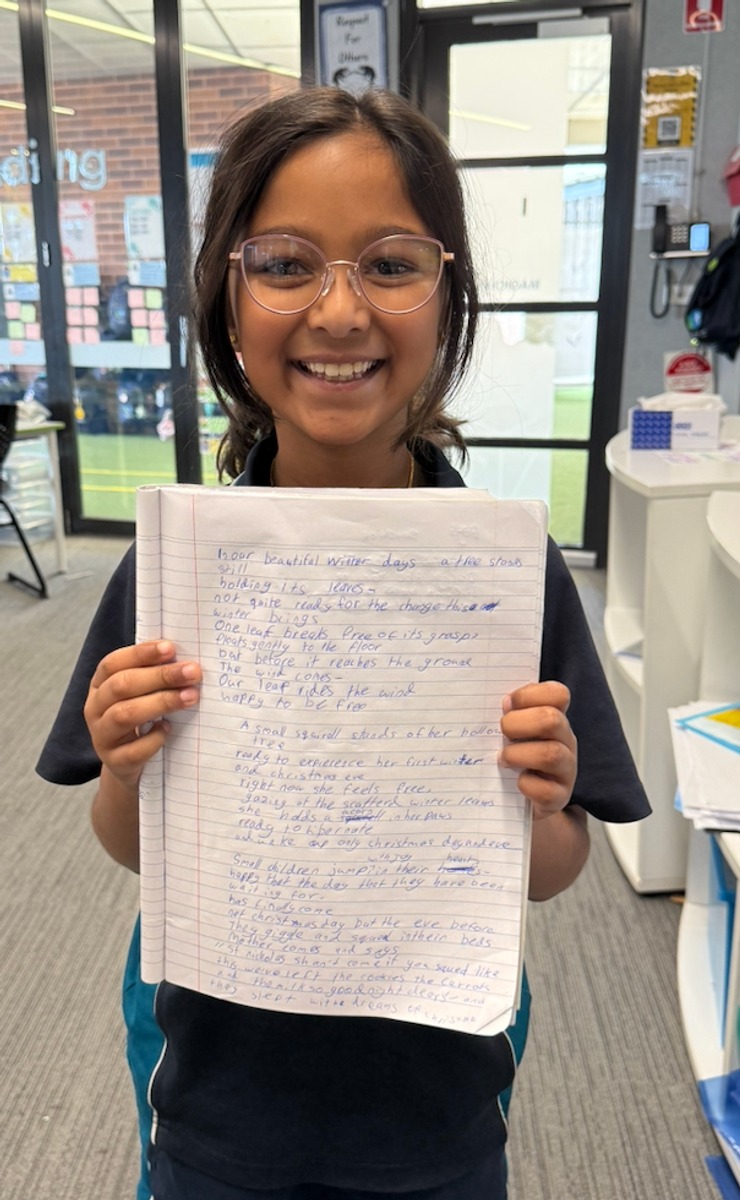 Respect
For
Others
ding
In our beautiful winter days a tree stands
still
holding its leaves-
not quite ready for the change this
winter brings
One leaf breaks free of its grasp,
floats gently to the floor
but before it reaches the ground
The wind comes-
Our leaf rides the wind
happy to be free
A small squirell stands of her hollow
tree
ready to experience her first winter
and christmas eve
right now she feels free,
gazing at the scatterd winter leaves
she holds a acorn in her paws
ready to hibernate
and wake up only christmas day and eve
Small children jump with joy in their hearts-
happy that the day that they have been
waiting for-
has finaly come
not christmas day but the eve before
They giggle and squeal in their beds
Mother comes and says
"st nicholas shan't come if you squeal like
this we've left the cookies the carrots
and the milk so goodnight dears- and
they slept with dreams of christmas